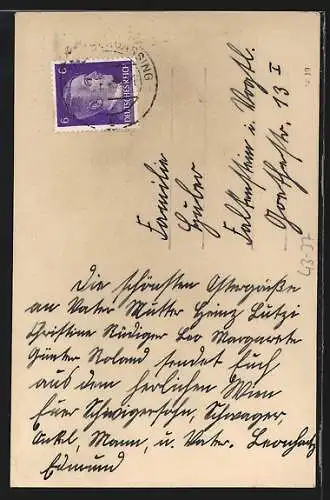 6 6
DEUTSCHES REICH
Familie
Huler
Falkenstein i. Vogtl.
Goethestr. 13 I
43-37
Die schönsten Ostergrüße
an Vater Mutter Heinz Lutzi
Christine Rüdiger Leo Margarete
Günter Roland sendet Euch
aus dem herlichen Wien
Euer Schwigersohn, Schwager,
Onkl, Mann, u. Vater.
Edmund